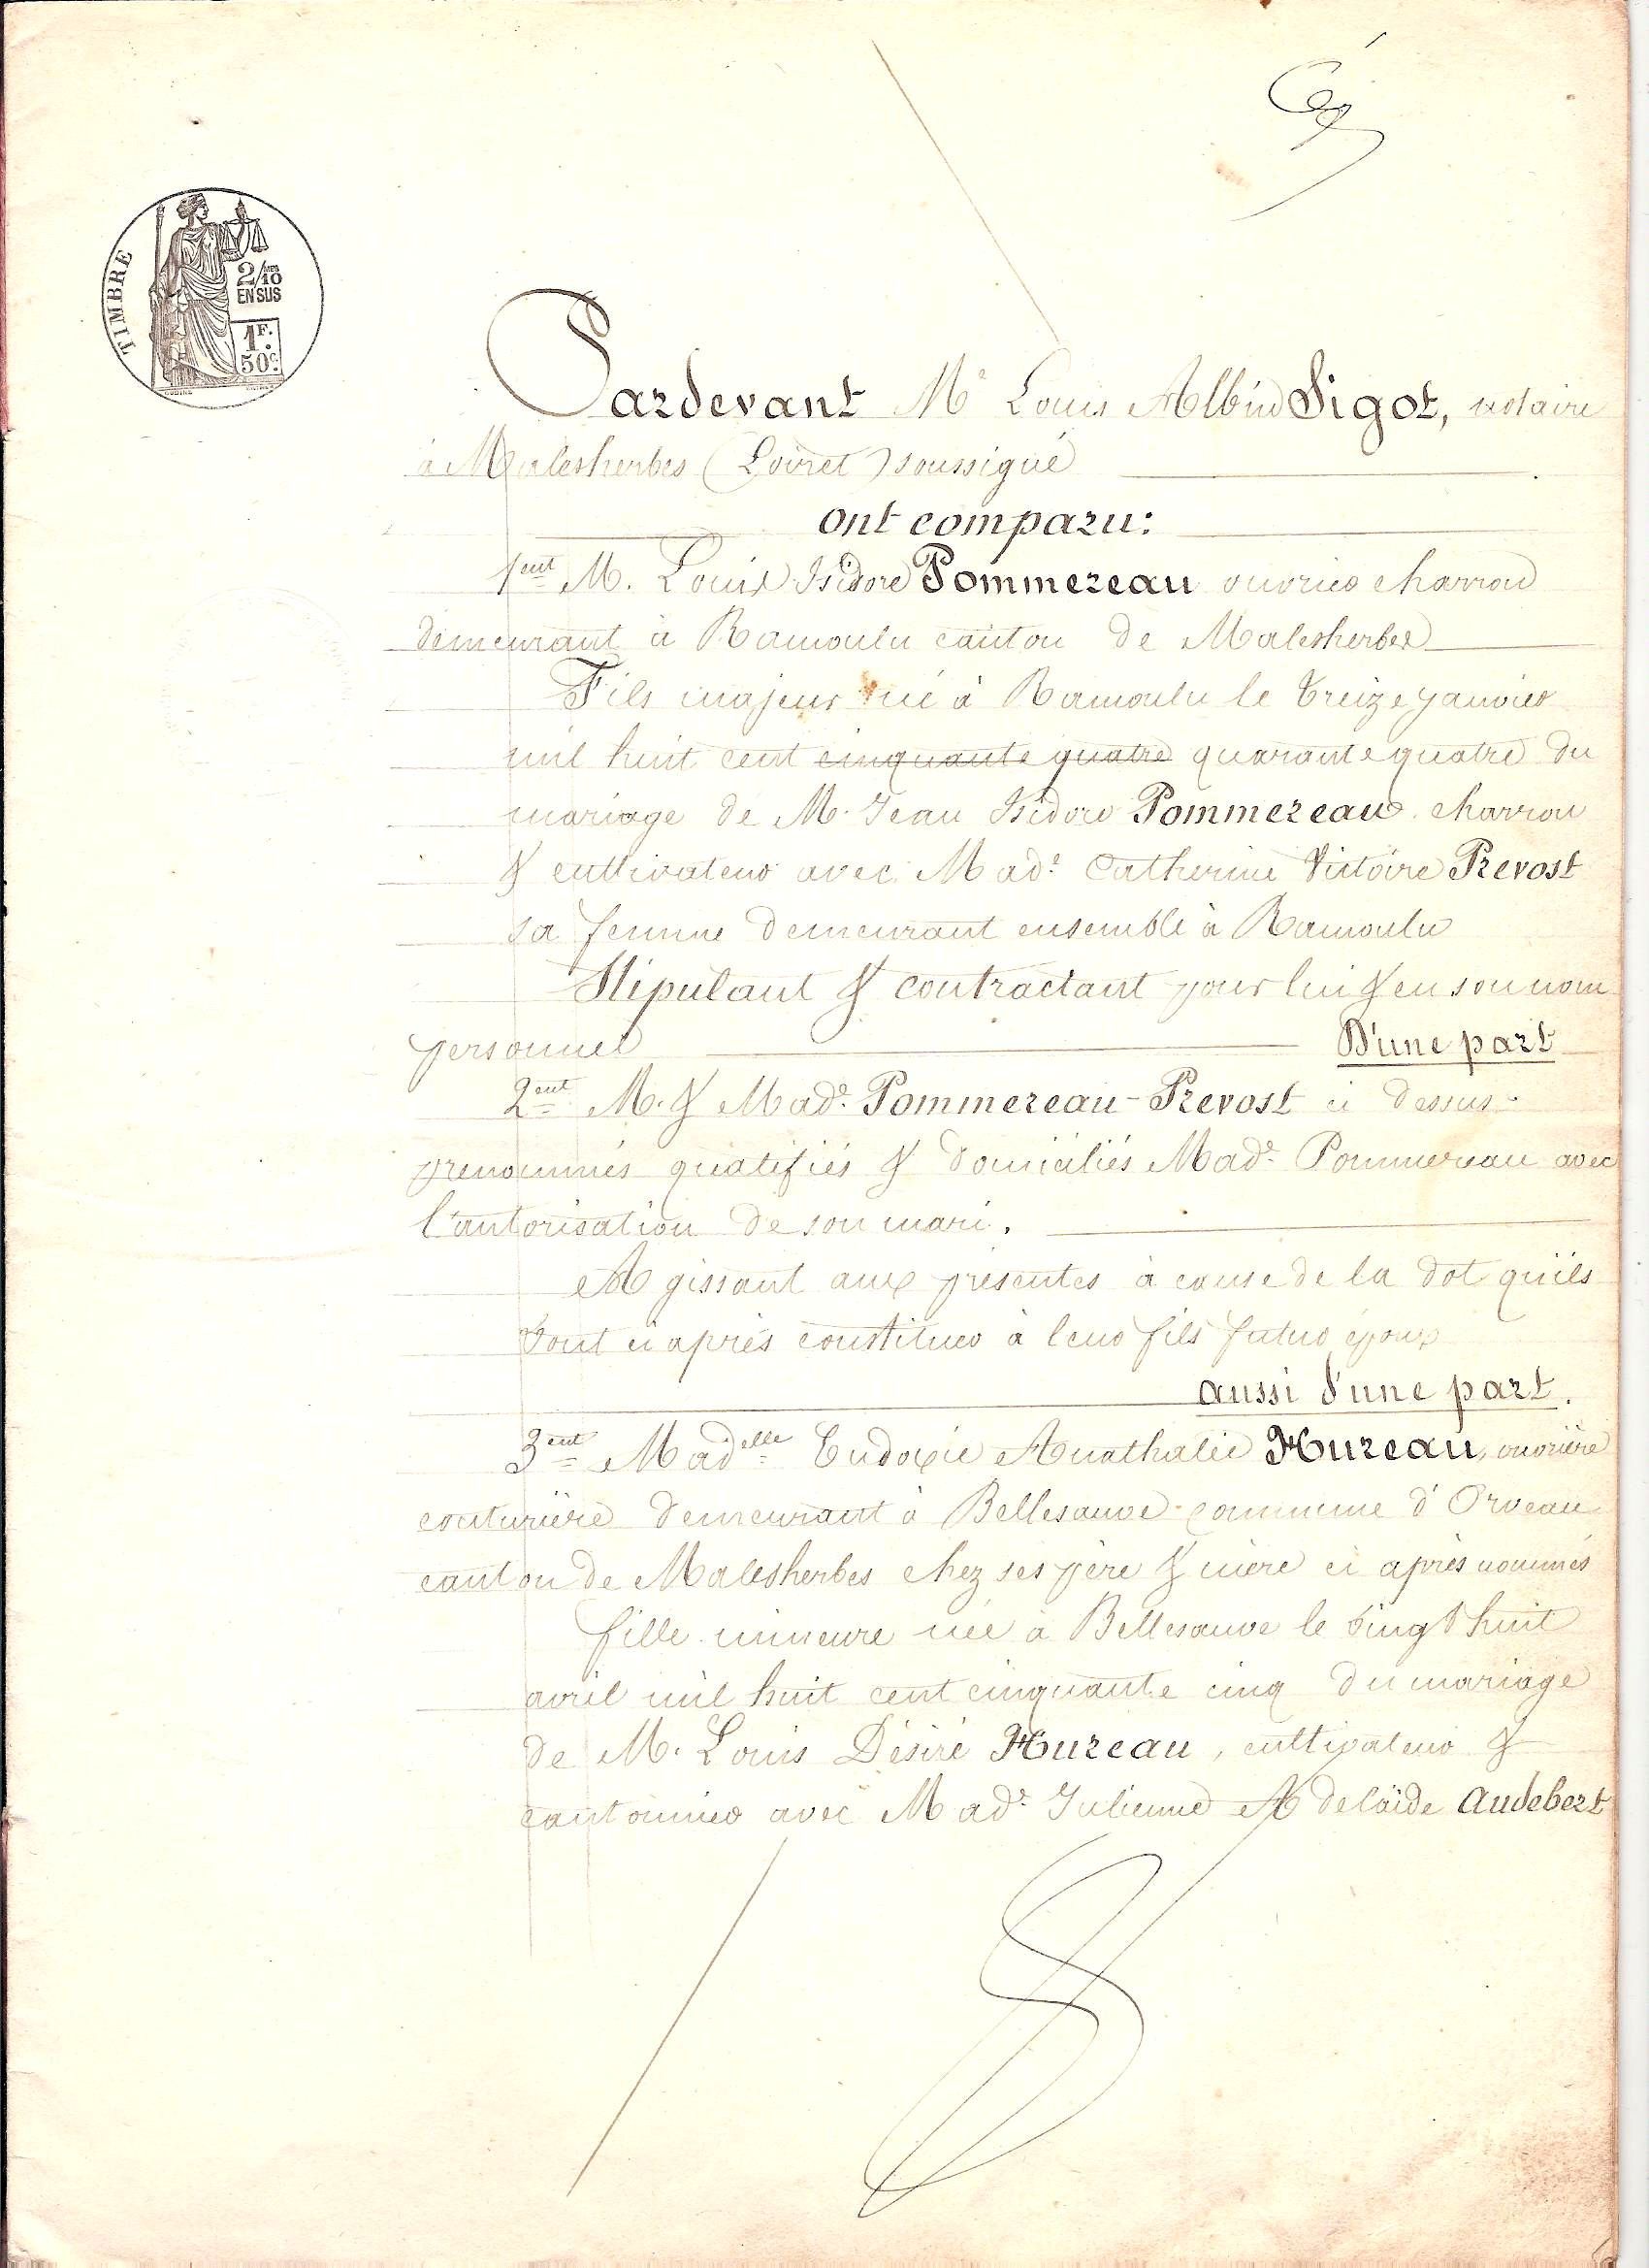 TIMBRE
2/10
EN SUS
1F.
50c.
Pardevant Me Louis Albin Sigot, notaire
à Malesherbes (Loiret) soussigné
ont comparu:
1ent M. Louis Isidore Pommereau ouvrier charron
demeurant à Ramoulu canton de Malesherbes
Fils majeur né à Ramoulu le treize janvier
mil huit cent cinquante quatre quarante quatre du
mariage de M. Jean Isidore Pommereau charron
& cultivateur avec Made Catherine Victoire Prevost
sa femme demeurant ensemble à Ramoulu
Stipulant & contractant pour lui & en son nom
personnel D'une part
2ent M. & Made Pommereau-Prevost ci dessus
prenommés qualifiés & domiciliés Made Pommereau avec
l'autorisation de son mari.
Agissant aux présentes à cause de la dot qu'ils
vont ci après constituer à leur fils futur époux
aussi d'une part.
3ent Madelle Eudoxie Anathalie Hureau, ouvrière
couturière demeurant à Bellesauve commune d'Orveau
canton de Malesherbes chez ses père & mère ci après nommés
fille mineure née à Bellesauve le vingt huit
avril mil huit cent cinquante cinq du mariage
de M. Louis Désiré Hureau, cultivateur &
cantonnier avec Made Julienne Adelaïde Audebert